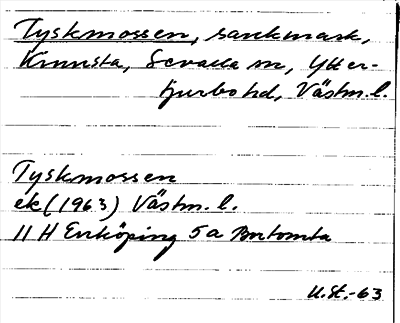 Tyskmossen, sankmark,
Krunsta, Sevalla sn, Ytter-
tjurbo hd, Västm. l.
Tyskmossen
ek (1963) Västm. l.
11 H Enköping 5a
U.St.-63